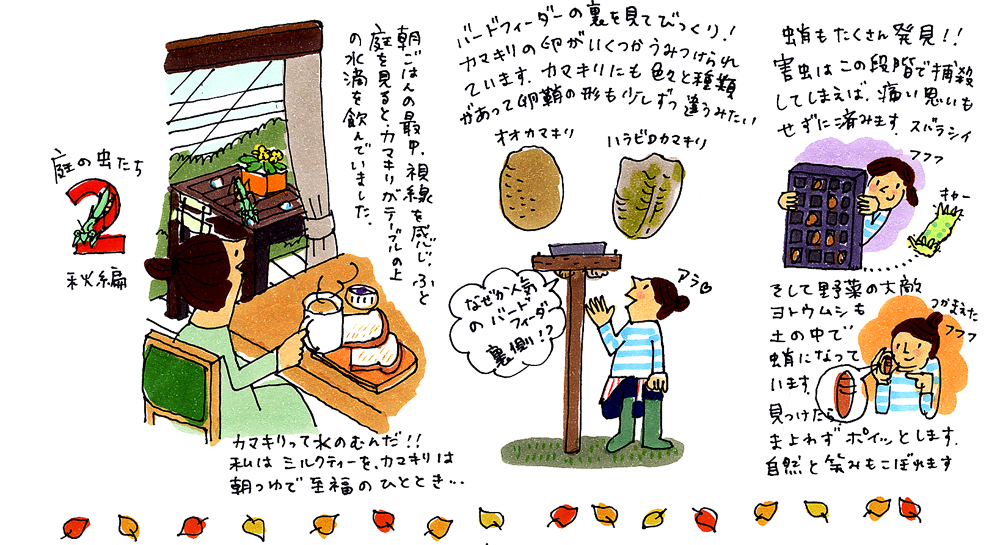 庭の虫たち
2
秋編
朝ごはんの最中、視線を感じ、ふと
庭を見ると、カマキリがテーブルの上
の水滴を飲んでいました。
カマキリって水のむんだ!!
私はミルクティーを、カマキリは
朝つゆで至福のひととき…
バードフィーダーの裏を見てびっくり!
カマキリの卵がいくつかうみつけられ
ています。カマキリにも色々と種類
があって卵鞘の形も少しずつ違うみたい
オオカマキリ
ハラビロカマキリ
なぜか人気
のバード
フィーダー
裏側!?
アラ♡
蛹もたくさん発見!!
害虫はこの段階で捕殺
してしまえば、痛い思いも
せずに済みます。スバラシイ
フフフ
キャー
そして野菜の大敵
ヨトウムシも
土の中で
蛹になって
います。
見つけたら
まよわずポイッとします。
自然と笑みもこぼれます
つかまえた
フフフ